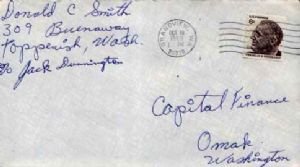 Donald C Smith
309 Buenaway
Toppenish, Wash.
c/o Jack Dunnington
GRANDVIEW, WA
OCT 18
PM
Capital Finance
Omak,
Washington